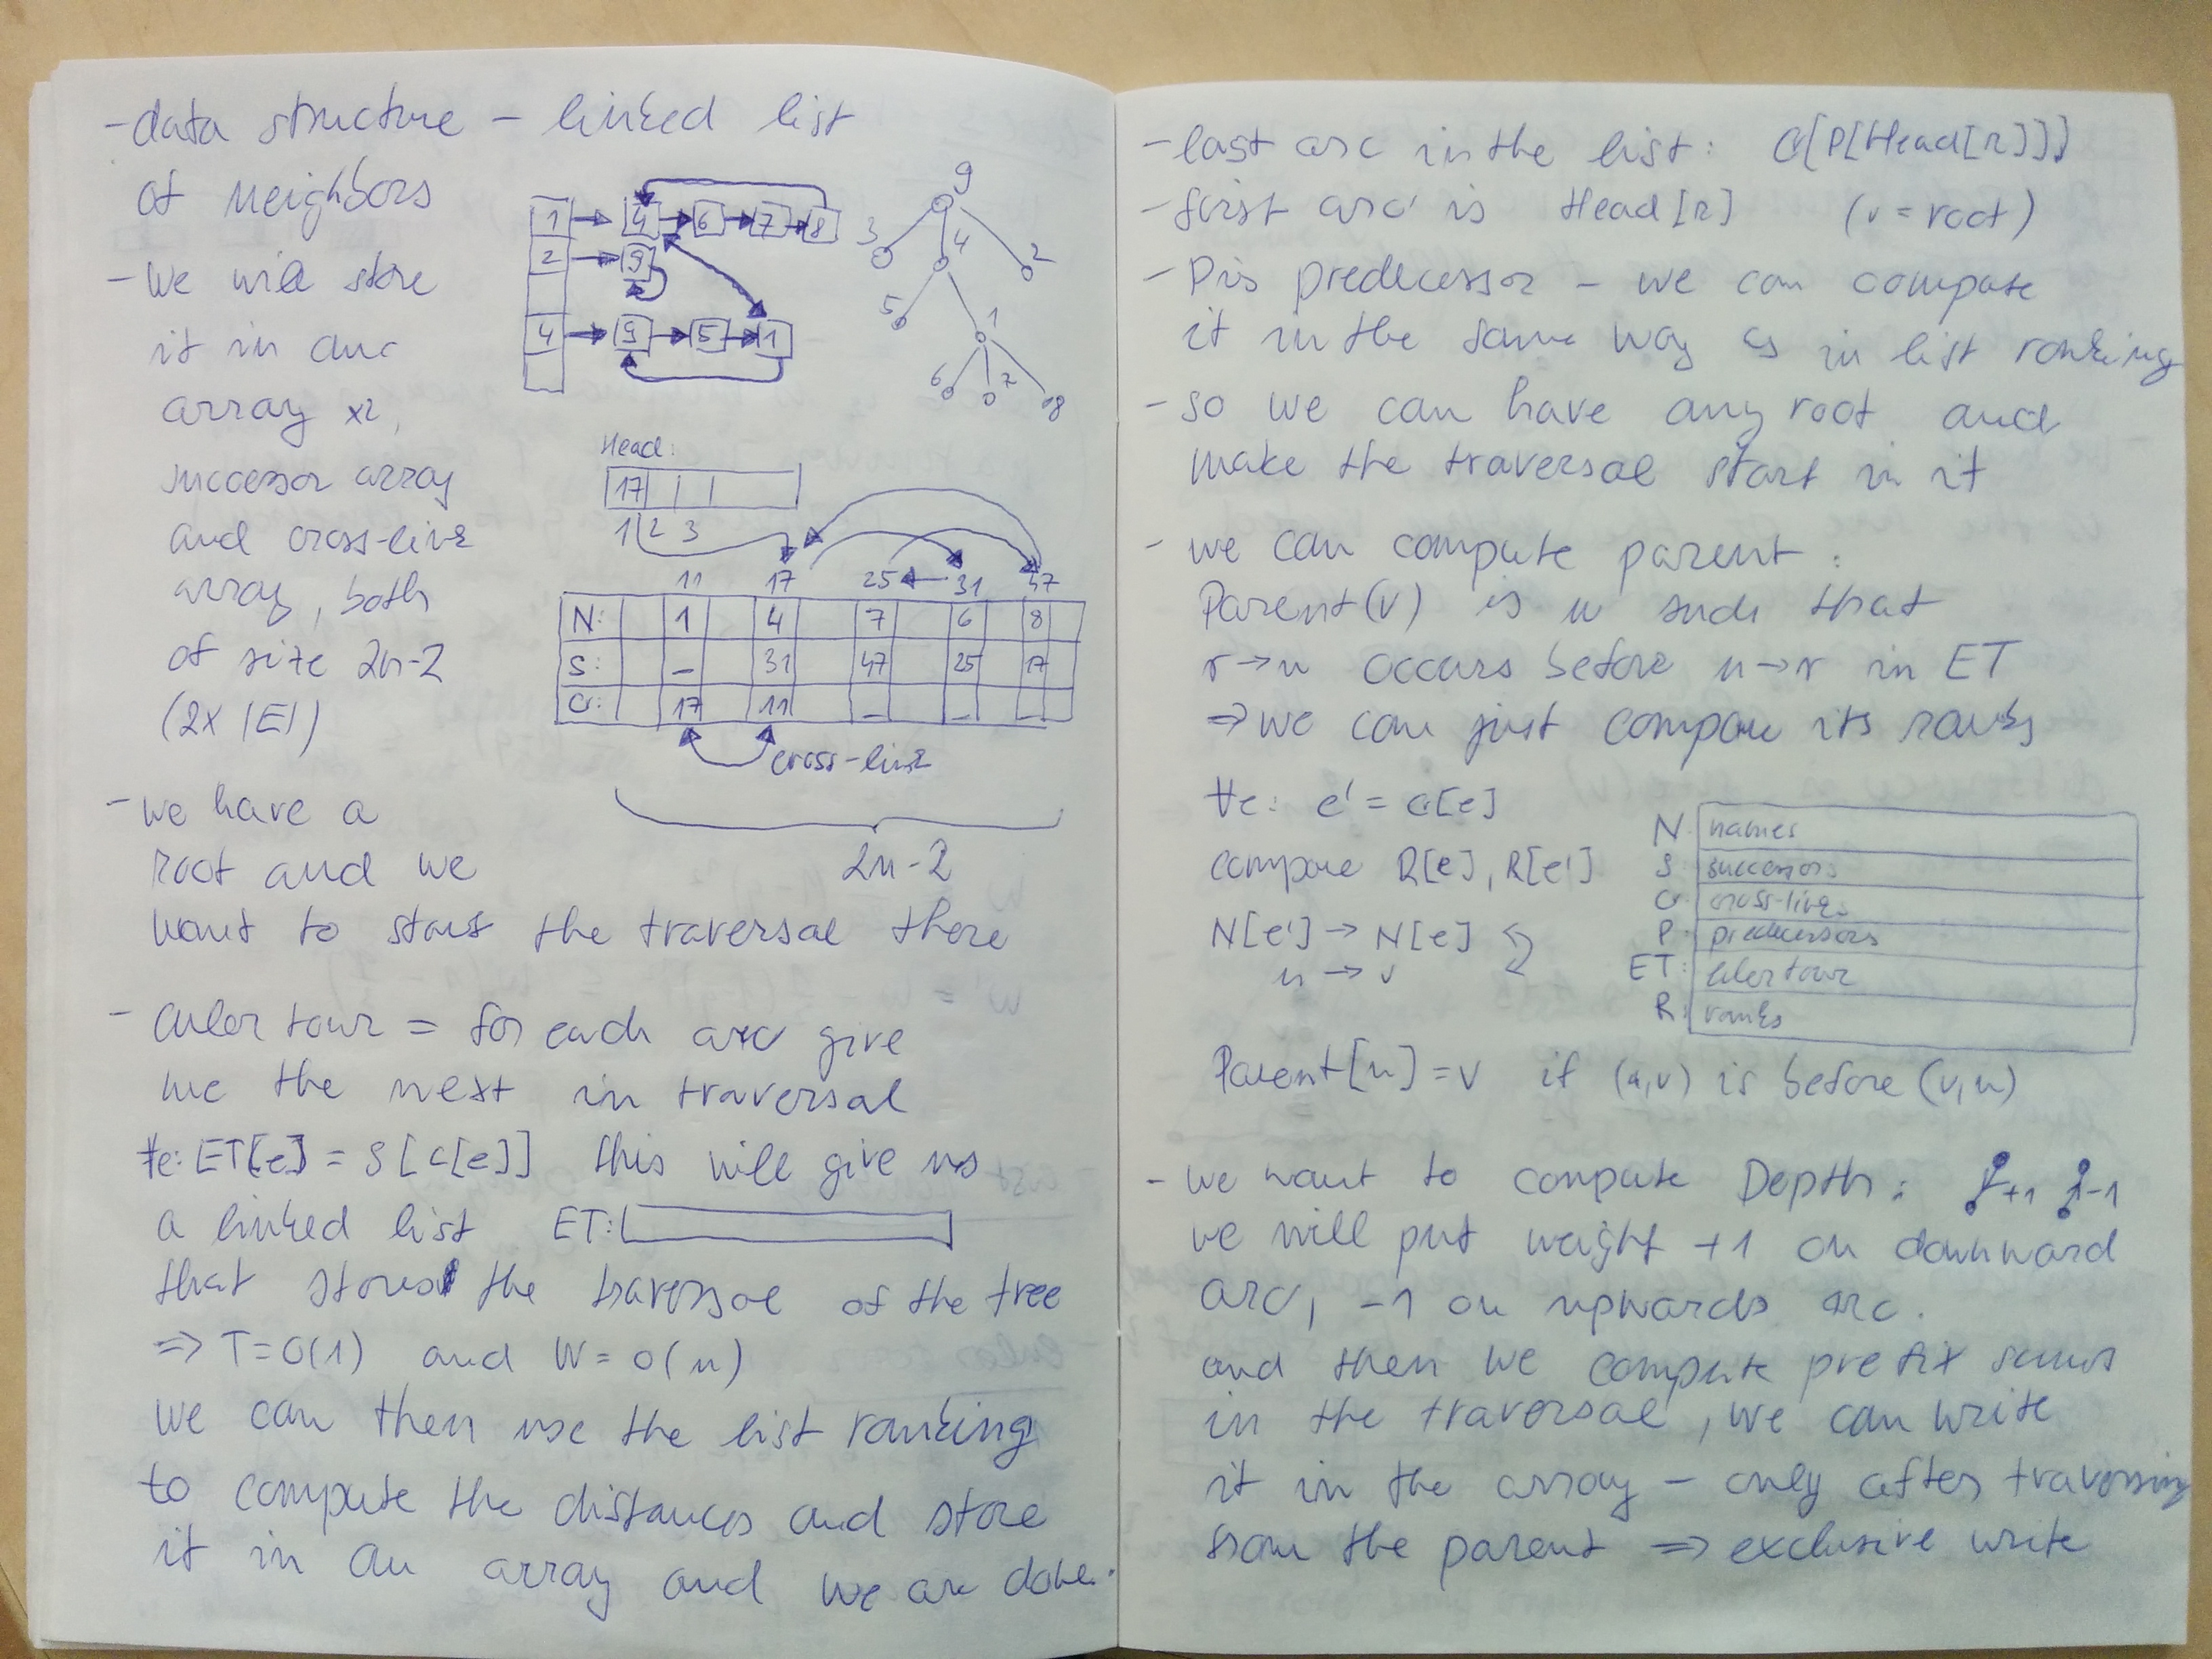 - data structure - linked list
of neighbors
- we will store
it in an
array x2,
successor array
and cross-link
array, both
of size 2n-2
(2x |E|)
1 4 6 7 8
2 9
4 9 5 1
9
3 4 2
5 1
6 7 8
Head:
17
1 2 3
11 17 25 31 47
N: 1 4 7 6 8
S: - 31 47 25 17
C: 17 11 - - -
cross-link
2n-2
- we have a
root and we
want to start the traversal there
- euler tour = for each arc give
me the next in traversal
∀e: ET[e] = S[C[e]] this will give us
a linked list ET:
that stores the traversal of the tree
=> T=O(1) and W=O(n)
we can then use the list ranking
to compute the distances and store
it in an array and we are done.
- last arc in the list: C[P[Head[r]]]
- first arc is Head[r] (r = root)
- P is predecessor - we can compute
it in the same way as in list ranking
- so we can have any root and
make the traversal start in it
- we can compute parent:
Parent(v) is u such that
v→u occurs before u→v in ET
=> we can just compare its ranks
∀e: e' = C[e]
compare R[e], R[e']
N[e'] → N[e]
u → v
N: names
S: successors
C: cross-links
P: predecessors
ET: euler tour
R: ranks
Parent[u] = v if (u,v) is before (v,u)
- we want to compute Depth: +1 -1
we will put weight +1 on downward
arc, -1 on upwards arc.
and then we compute prefix sums
in the traversal, we can write
it in the array - only after traversing
from the parent => exclusive write